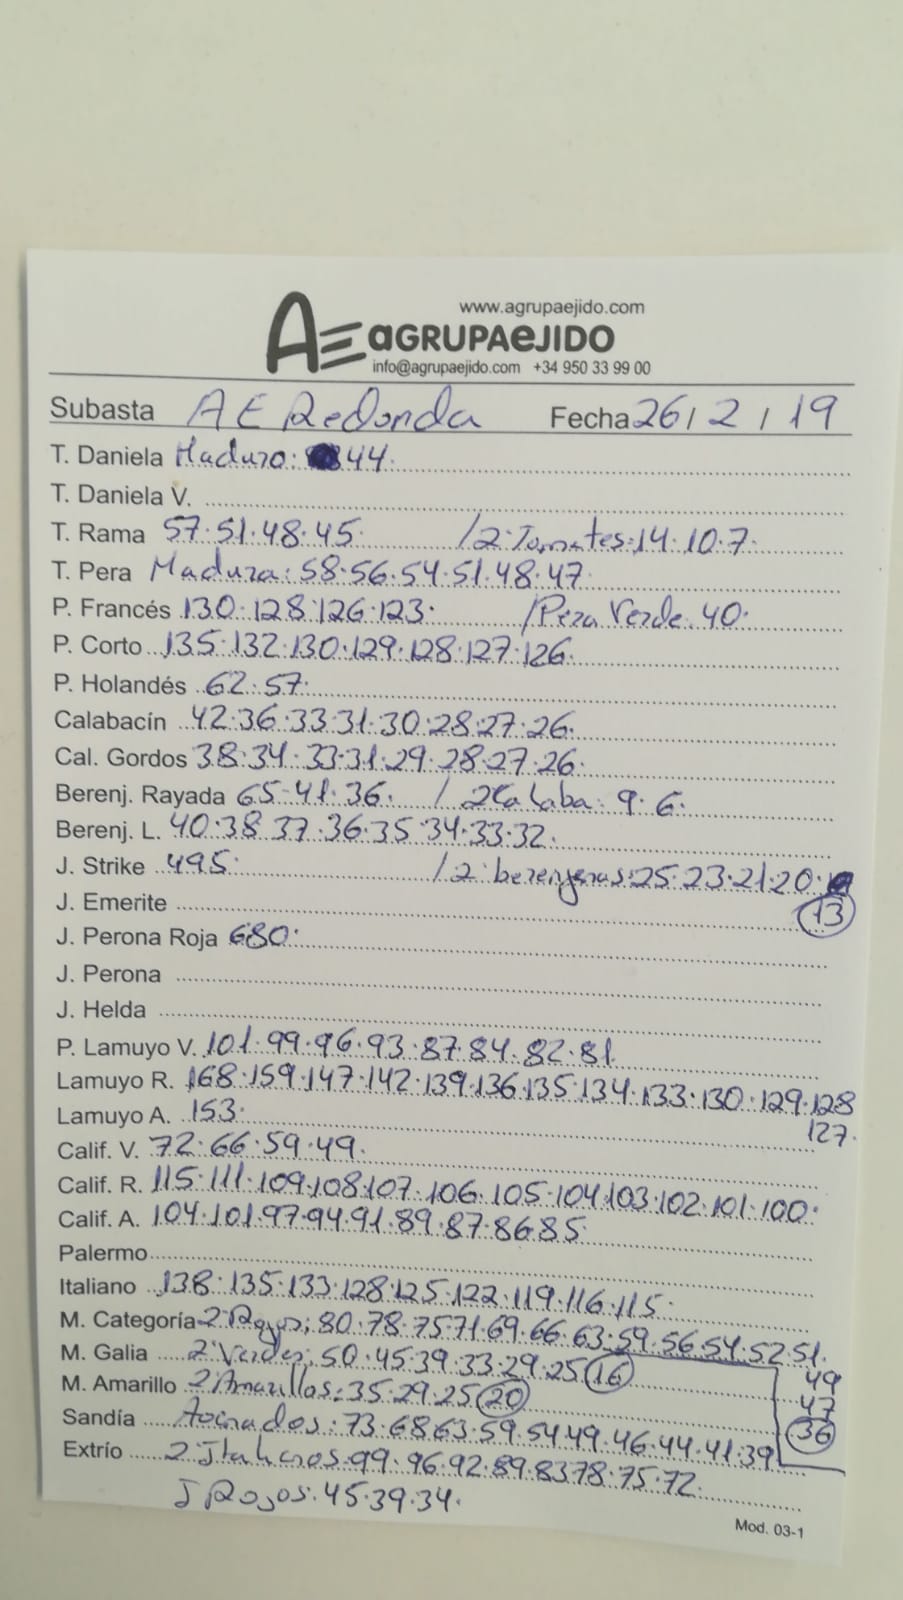 www.agrupaejido.com
AE aGRUPAeJIDO
info@agrupaejido.com +34 950 33 99 00
Subasta AE Redonda Fecha 26/2/19
T. Daniela Maduro: 44.
T. Daniela V.
T. Rama 57.51.48.45. /2ª Tomates: 14.10.7.
T. Pera Madura: 58.56.54.51.48.47.
P. Francés 130.128.126.123. /Pera Verde: 40.
P. Corto 135.132.130.129.128.127.126.
P. Holandés 62.57.
Calabacín 42.36.33.31.30.28.27.26.
Cal. Gordos 38.34.33.31.29.28.27.26.
Berenj. Rayada 65.41.36. / 2ª Calaba: 9.6.
Berenj. L. 40.38.37.36.35.34.33.32.
J. Strike 495. /2ª berenjenas: 25.23.21.20.
J. Emerite 13
J. Perona Roja 680.
J. Perona
J. Helda
P. Lamuyo V. 101.99.96.93.87.84.82.81.
Lamuyo R. 168.159.147.142.139.136.135.134.133.130.129.128
Lamuyo A. 153. 127.
Calif. V. 72.66.59.49.
Calif. R. 115.111.109.108.107.106.105.104.103.102.101.100.
Calif. A. 104.101.97.94.91.89.87.86.85.
Palermo
Italiano 138.135.133.128.125.122.119.116.115.
M. Categoría 2ª Rojos: 80.78.75.71.69.66.63.59.56.54.52.51.
M. Galia 2ª Verdes: 50.45.39.33.29.25 16 49
M. Amarillo 2ª Amarillos: 35.29.25 20 47
Sandía Asinados: 73.68.63.59.54.49.46.44.41.39 36
Extrío 2ª Italianos: 99.96.92.89.83.78.75.72.
J Rojos: 45.39.34.
Mod. 03-1